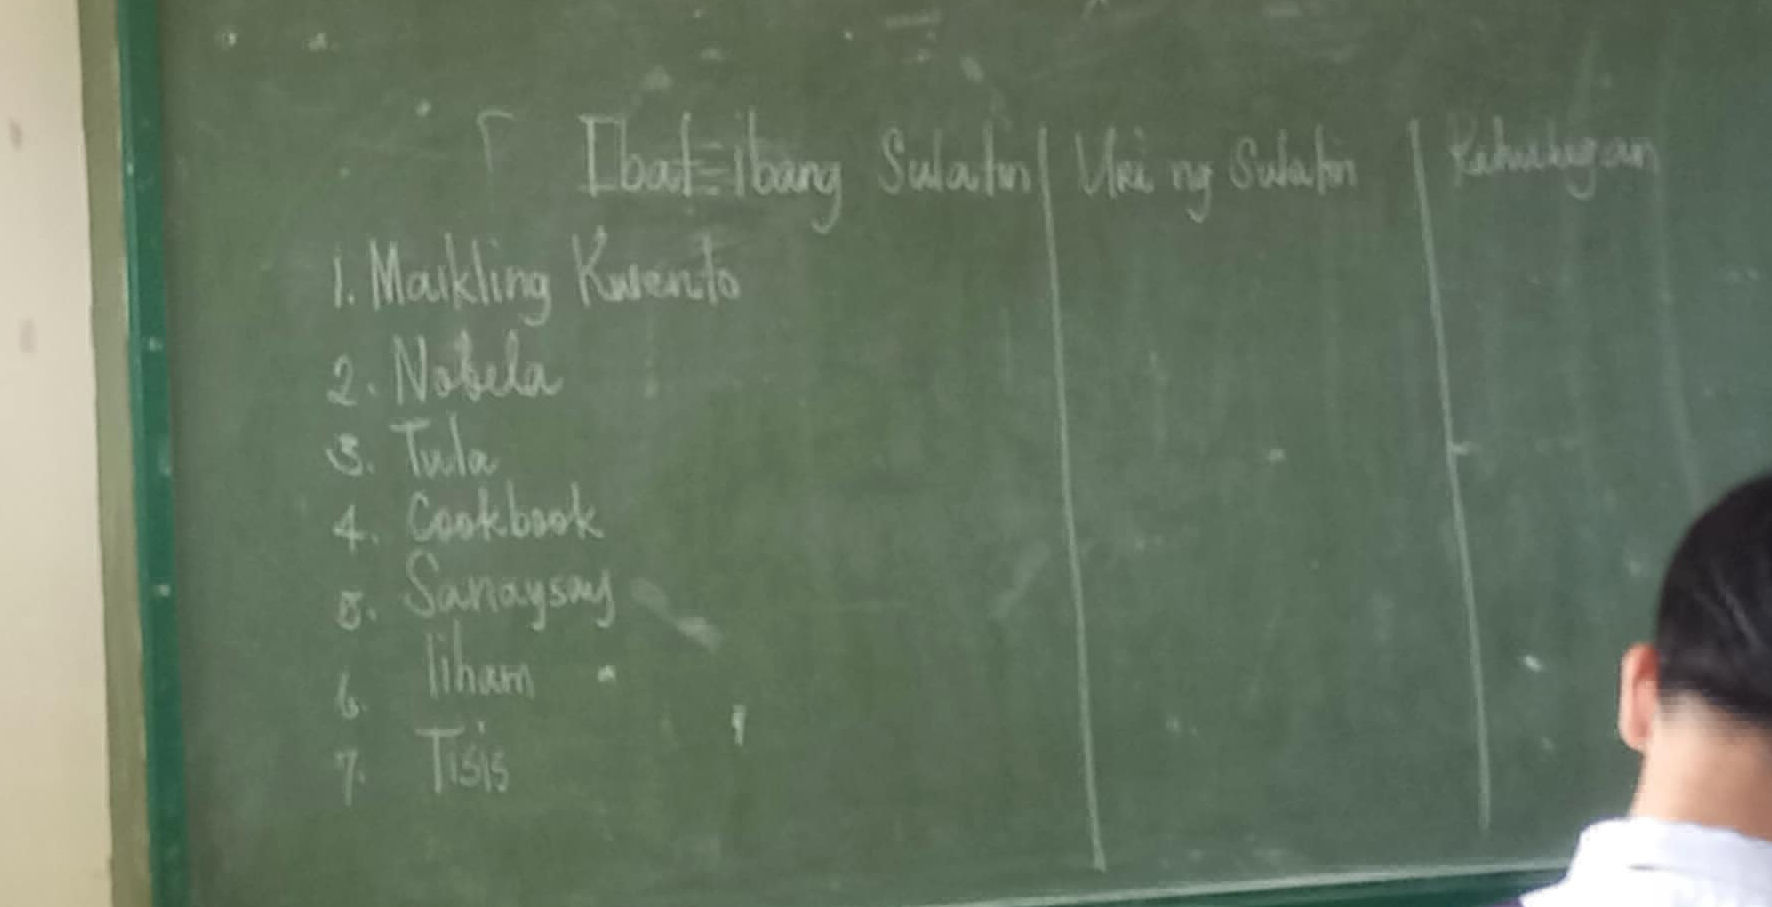 Ibat-ibang Sulatin Uri ng Sulatin Kahulugan
1. Maikling Kwento
2. Nobela
3. Tula
4. Cookbook
5. Sanaysay
6. liham
7. Tisis